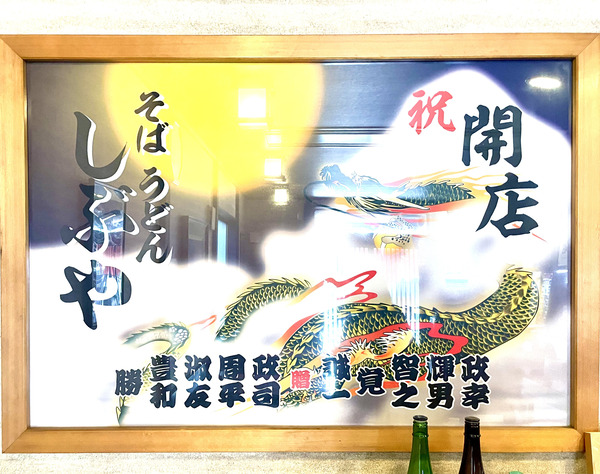 祝
開店
政幸
輝男
智之
覚
誠一
贈
政司
周平
淑友
豊和
勝
そば うどん
しぶや